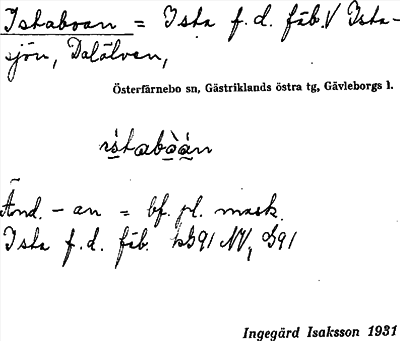 Istaboan = Ista f.d. fäb. V Ista-
sjön, Dalälven,
Österfärnebo sn, Gästriklands östra tg, Gävleborgs l.
ìstabòàn
Änd. - an = bf. pl. mask.
Ista f.d. fäb. hB91 NV, B91
Ingegärd Isaksson 1931